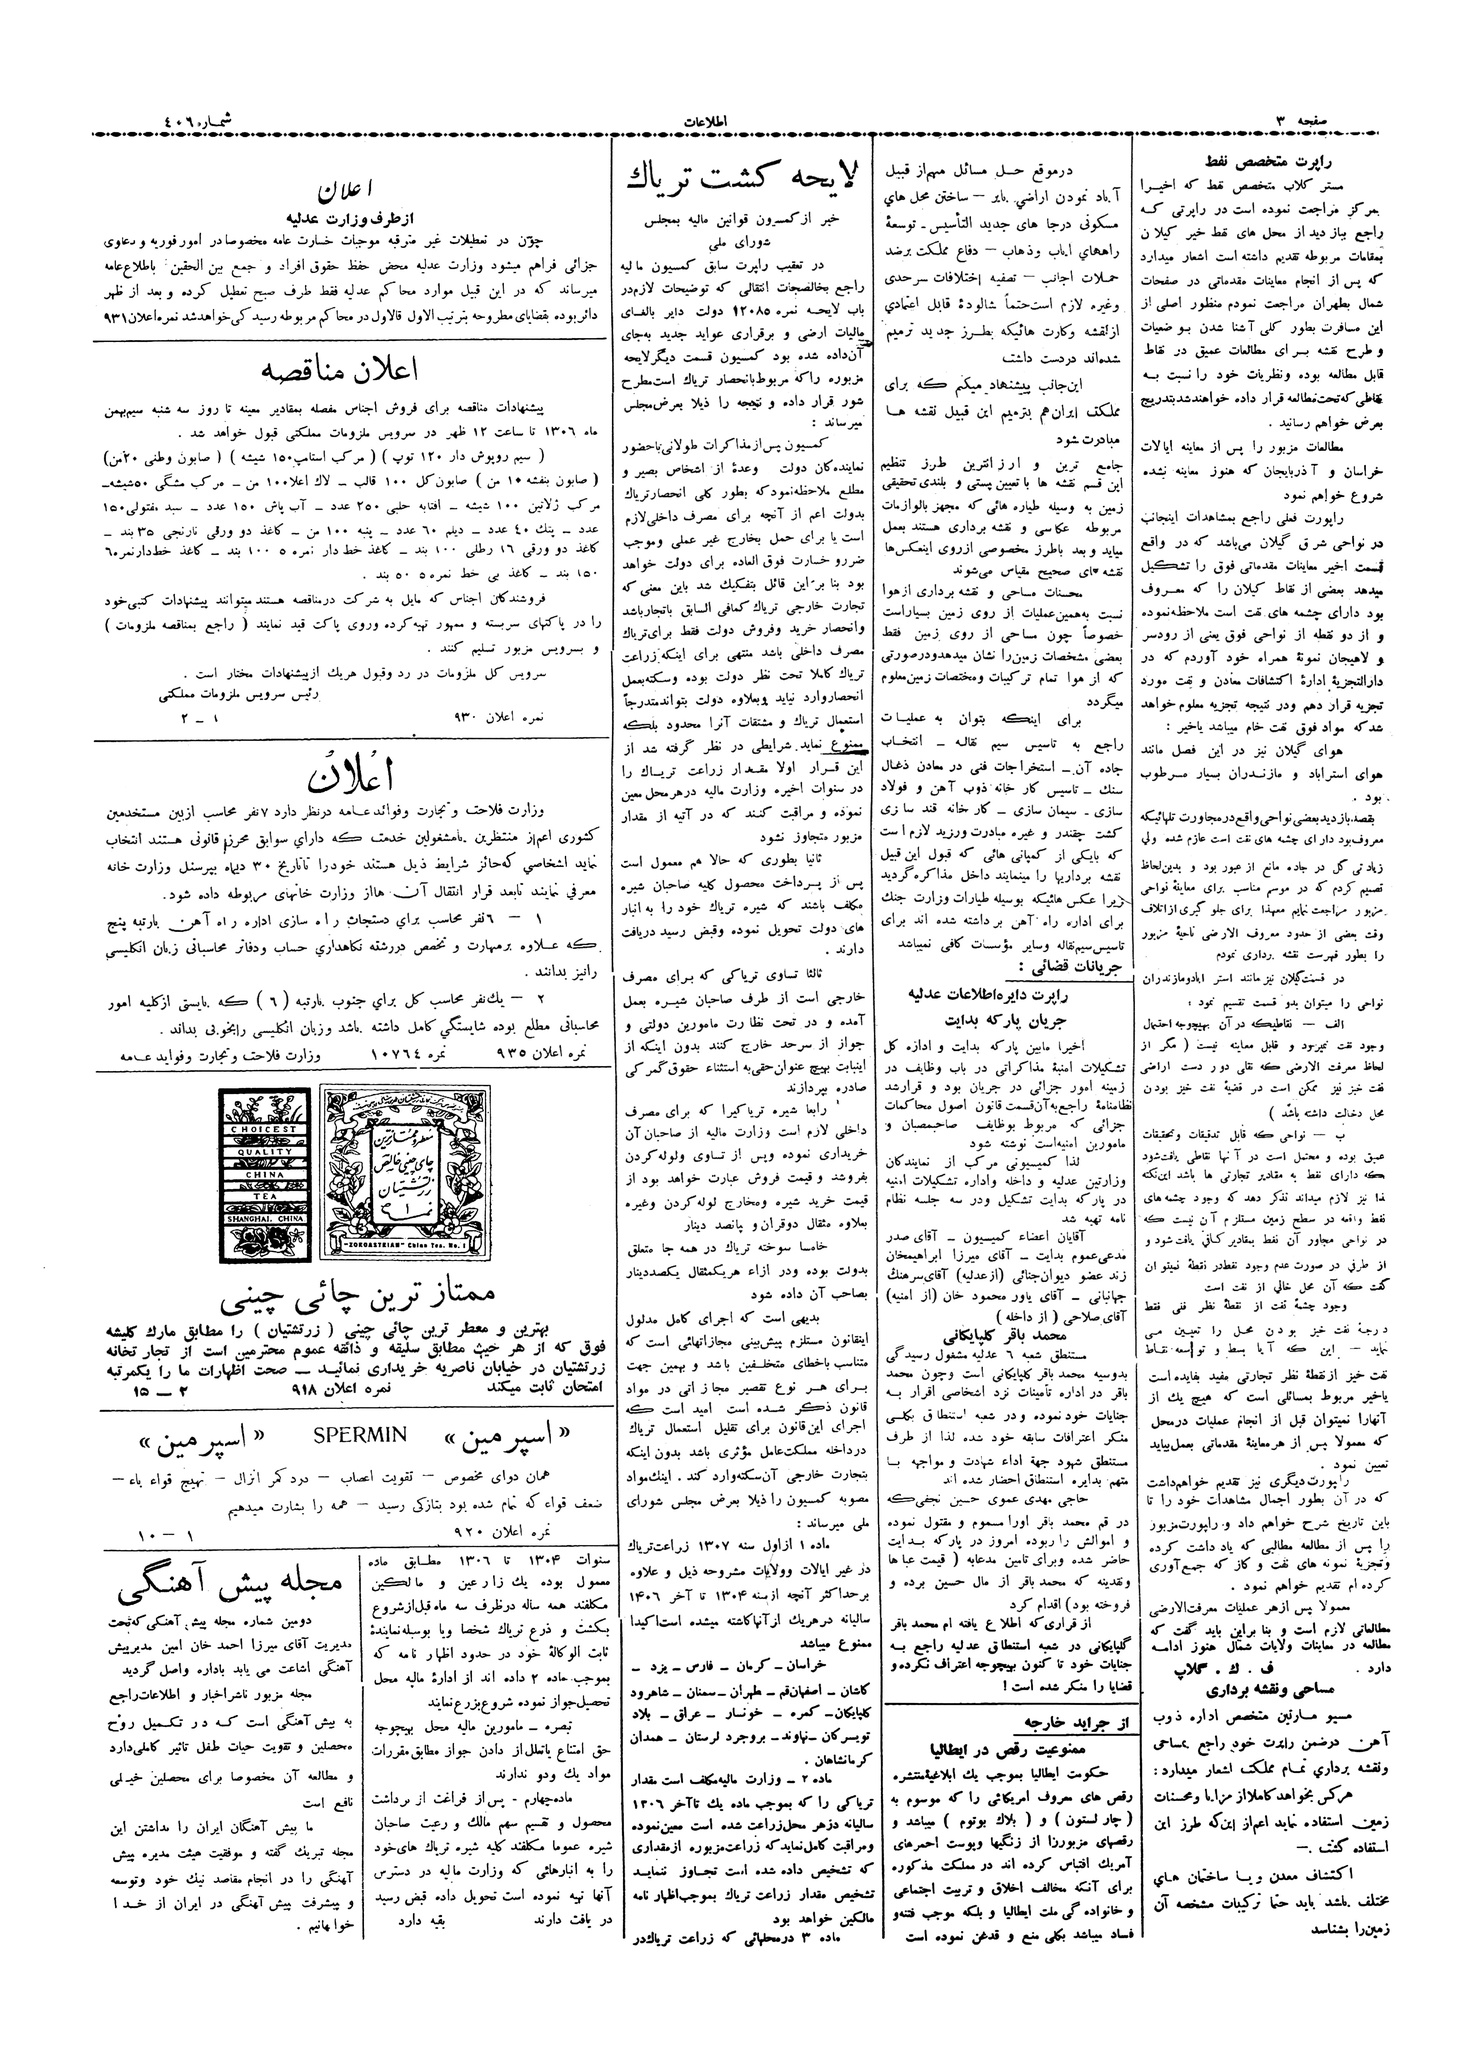 صفحه ۳
اطلاعات
شماره ۴۰۶
راپرت متخصص نفط
مستر کلاب متخصص نفط که اخیراً
بمرکز مراجعت نموده است در راپرتی که
راجع ببازدید از محل های نفط خیز گیلان
بمقامات مربوطه تقدیم داشته است اشعار میدارد
که پس از انجام معاینات مقدماتی در صفحات
شمال بطهران مراجعت نمودم منظور اصلی از
این مسافرت بطور کلی آشنا شدن بوضعیات
و طرح نقشه برای مطالعات عمیق در نقاط
قابل مطالعه بوده ونظریات خود را نسبت به
نقاطی که تحت مطالعه قرار داده خواهند شد بتدریج
بعرض خواهم رسانید .
مطالعات مزبور را پس از معاینه ایالات
خراسان و آذربایجان که هنوز معاینه نشده
شروع خواهم نمود
راپورت فعلی راجع بمشاهدات اینجانب
در نواحی شرق گیلان می‌باشد که در واقع
قسمت اخیر معاینات مقدماتی فوق را تشکیل
میدهد بعضی از نقاط گیلان را که معروف
بود دارای چشمه های نفت است ملاحظه نموده
و از دو نقطه از نواحی فوق یعنی از رودسر
و لاهیجان نمونهٔ همراه خود آوردم که در
دارالتجزیهٔ ادارهٔ اکتشافات معادن و نفت مورد
تجزیه قرار دهم ودر نتیجه تجزیه معلوم خواهد
شد که مواد فوق نفت خام میباشد یاخیر :
هوای گیلان نیز در این فصل مانند
هوای استراباد و مازندران بسیار مرطوب
بود .
بقصد بازدید بعضی نواحی واقع در مجاورت تلهائیکه
معروف بود دارای چشمه های نفت است عازم شده ولی
زیادتی گل در جاده مانع از عبور بود و بدین لحاظ
تصمیم کردم که در موسم مناسب برای معاینهٔ نواحی
مزبور مراجعت نمایم معهذا برای جلوگیری از اتلاف
وقت بعضی از حدود معروف الارضی ناحیهٔ مزبور
را بطور فهرست نقشه برداری نمودم
در قسمت گیلان نیز مانند استراباد و مازندران
نواحی را میتوان بدو قسمت تقسیم نمود :
الف — نقاطیکه در آن بهیچوجه احتمال
وجود نفت نمیرود و قابل معاینه نیست ( مگر از
لحاظ معرفت الارضی که نقلی دور دست اراضی
نفت خیز نیز ممکن است در قضیهٔ نفت خیز بودن
محل دخالت داشته باشد )
ب — نواحی که قابل تدقیقات و تحقیقات
عمیق بوده و محتمل است در آنها نقاطی یافت شود
که دارای نفط به مقادیر تجارتی ها باشد این نکته
لذا نیز لازم میداند تذکر دهد که وجود چشمه های
نفط واقعه در سطح زمین مستلزم آن نیست که
در نواحی مجاور آن نفط بمقادیر کافی یافت شود و
از طرفی در صورت عدم وجود نفط در نقطهٔ نمیتوان
گفت که آن محل خالی از نفت است
وجود چشمهٔ نفت از نقطهٔ نظر فنی فقط
درجهٔ نفت خیز بودن محل را تعیین می
نماید — این که آیا بسط و توسعه نقاط
نفت خیز از نقطهٔ نظر تجارتی مفید بفایده است
یاخیر مربوط بمسائلی است که هیچ یک از
آنهارا نمیتوان قبل از انجام عملیات در محل
که معمولا پس از هر معاینهٔ مقدماتی بعمل بیاید
تعیین نمود .
راپورت دیگری نیز تقدیم خواهم داشت
که در آن بطور اجمال مشاهدات خود را تا
باین تاریخ شرح خواهم داد و راپورت مزبور
را پس از مطالعه مطالبی که یادداشت کرده
و تجزیهٔ نمونه های نفت و گاز که جمع آوری
کرده ام تقدیم خواهم نمود .
معمولا پس از هر عملیات معرفت الارضی
مطالعاتی لازم است و بنا براین باید گفت که
مطالعه در معاینات ولایات شمال هنوز ادامه
دارد .
ف . ك . گلاپ
مساحی ونقشه برداری
مسیو مارتین متخصص اداره ذوب
آهن درضمن راپرت خود راجع بمساحی
ونقشه برداری تمام مملکت اشعار میدارد :
هرکس بخواهد کاملا از مزایا ومحسنات
زمین استفاده نماید اعم از این که طرز این
استفاده گشت .—
اکتشاف معدن ویا ساختمان های
مختلف باشد باید حتما ترکیبات مشخصه آن
زمین‌را بشناسد
درموقع حل مسائل مهم از قبیل
آباد نمودن اراضی بایر — ساختن محل های
مسکونی درجا های جدید التأسیس ـ توسعهٔ
راههای ایاب وذهاب — دفاع مملکت برضد
حملات اجانب — تصفیه اختلافات سرحدی
وغیره لازم است حتماً شالودهٔ قابل اعتمادی
از نقشه وکارت هائیکه بطرز جدید ترمیم
شده‌اند دردست داشت
این‌جانب پیشنهاد میکنم که برای
مملکت ایران هم بترمیم این قبیل نقشه ها
مبادرت شود
جامع ترین و ارزانترین طرز تنظیم
این قسم نقشه ها با تعیین پستی و بلندی تحقیقی
زمین به وسیله طیاره هائی که مجهز بالوازمات
مربوطه عکاسی و نقشه برداری هستند بعمل
میاید و بعد باطرز مخصوصی از روی اینعکس‌ها
نقشه های صحیح مقیاس می‌شوند
محسنات مساحی و نقشه برداری از هوا
نسبت به همین عملیات از روی زمین بسیار است
خصوصاً چون مساحی از روی زمین فقط
بعضی مشخصات زمین‌را نشان میدهد و درصورتی
که از هوا تمام ترکیبات و مختصات زمین معلوم
میگردد
برای اینکه بتوان به عملیات
راجع به تاسیس سیم نقاله ـ انتخاب
جاده آن ـ استخراجات فنی در معادن ذغال
سنك ـ تاسیس کارخانه ذوب آهن و فولاد
سازی ـ سیمان سازی ـ کارخانه قند سازی
کشت چغندر و غیره مبادرت ورزید لازم است
که بایکی از کمپانی هائی که قبول این قبیل
نقشه برداریها را مینمایند داخل مذاکره گردید
زیرا عکس هائیکه بوسیله طیارات وزارت جنك
برای اداره راه آهن برداشته شده اند برای
تاسیس سیم نقاله وسایر مؤسسات کافی نمیباشد
جریانات قضائی :
راپرت دایره اطلاعات عدلیه
جریان پارکه بدایت
اخیراً مابین پارکه بدایت و اداره کل
تشکیلات امنیهٔ مذاکراتی در باب وظایف در
زمینه امور جزائی در جریان بود و قرار شد
نظامنامهٔ راجع به آن قسمت قانون اصول محاکمات
جزائی که مربوط بوظایف صاحبمنصبان و
مامورین امنیه است نوشته شود
لذا کمیسیونی مرکب از نمایندگان
وزارتین عدلیه و داخله و اداره تشکیلات امنیه
در پارکه بدایت تشکیل ودر سه جلسه نظام
نامه تهیه شد
آقایان اعضاء کمیسیون ـ آقای صدر
مدعی عموم بدایت ـ آقای میرزا ابراهیمخان
زند عضو دیوان جنائی ( از عدلیه ) آقای سرهنگ
جهانبانی ـ آقای یاور محمود خان ( از امنیه )
آقای صلاحی ( از داخله )
محمد باقر گلپایگانی
مستنطق شعبه ۶ عدلیه مشغول رسیدگی
بدوسیه محمد باقر گلپایگانی است وچون محمد
باقر در اداره تأمینات نزد اشخاصی اقرار به
جنایات خود نموده و در شعبه استنطاق بکلی
منکر اعترافات سابقه خود شده لذا از طرف
مستنطق شهود جههٔ اداء شهادت و مواجهه با
متهم بدایره استنطاق احضار شده اند
حاجی مهدی عموی حسین نجفی که
در قم محمد باقر اورا مسموم و مقتول نموده
و اموالش را ربوده امروز در پارکه بدایت
حاضر شده وبرای تامین مدعابه ( قیمت عباها
ونقدینه که محمد باقر از مال حسین برده و
فروخته بود ) اقدام کرد
از قراری که اطلاع یافته ام محمد باقر
گلپایگانی در شعبه استنطاق عدلیه راجع به
جنایات خود تا کنون بهیچوجه اعتراف نکرده و
قضایا را منکر شده است !
از جراید خارجه
ممنوعیت رقص در ایطالیا
حکومت ایطالیا بموجب یك ابلاغیهٔ منتشره
رقص های معروف امریکائی را که موسوم به
( چارلستون ) و ( بلاك بوتوم ) میباشد و
رقصهای مزبوررا از زنگیها وپوست احمرهای
آمریك اقتباس کرده اند در مملکت مذکوره
برای آنکه مخالف اخلاق و تربیت اجتماعی
و خانواده گی ملت ایطالیا و بلکه موجب فتنه و
فساد میباشد بکلی منع و قدغن نموده است
لایحه کشت تریاك
خبر از کمسیون قوانین مالیه بمجلس
شورای ملی
در تعقیب راپرت سابق کمسیون مالیه
راجع بخالصجات انتقالی که توضیحات لازم در
باب لایحه نمره ۱۲۰۸۵ دولت دایر بالغای
مالیات ارضی و برقراری عواید جدید به‌جای
آن داده شده بود کمسیون قسمت دیگر لایحه
مزبوره راکه مربوط بانحصار تریاك است مطرح
شور قرار داده و نتیجه را ذیلا بعرض مجلس
میرساند :
کمسیون پس از مذاکرات طولانی با حضور
نماینده کان دولت وعدهٔ از اشخاص بصیر و
مطلع ملاحظه نمود که بطور کلی انحصار تریاك
بدولت اعم از آنچه برای مصرف داخلی لازم
است یا برای حمل بخارج غیر عملی وموجب
ضرر و خسارت فوق العاده برای دولت خواهد
بود بنا براین قائل بتفکیك شد باین معنی که
تجارت خارجی تریاك کمافی السابق باتجار باشد
وانحصار خرید وفروش دولت فقط برای تریاك
مصرف داخلی باشد منتهی برای اینکه زراعت
تریاك کاملا تحت نظر دولت بوده وسکته بعمل
انحصار وارد نیاید وبعلاوه دولت بتواند متدرجاً
استعمال تریاك و مشتقات آنرا محدود بلکه
ممنوع نماید شرایطی در نظر گرفته شد از
این قرار اولا مقدار زراعت تریاك را
در سنوات اخیره وزارت مالیه در هر محل معین
نموده و مراقبت کنند که در آتیه از مقدار
مزبور متجاوز نشود
ثانیا بطوری که حالا هم معمول است
پس از پرداخت محصول کلیه صاحبان شیره
مکلف باشند که شیره تریاك خود را به انبار
های دولت تحویل نموده وقبض رسید دریافت
دارند .
ثالثا تساوی تریاکی که برای مصرف
خارجی است از طرف صاحبان شیره بعمل
آمده و در تحت نظارت مامورین دولتی و
جواز از سرحد خارج کنند بدون اینکه از
اینبابت بهیچ عنوان حقی به استثناء حقوق گمرکی
صادره بپردازند
رابعا شیره تریاکیرا که برای مصرف
داخلی لازم است وزارت مالیه از صاحبان آن
خریداری نموده وپس از تساوی ولوله کردن
بفروشد و قیمت فروش عبارت خواهد بود از
قیمت خرید شیره ومخارج لوله کردن وغیره
بعلاوه مثقال دوقران و پانصد دینار
خامسا سوخته تریاك در همه جا متعلق
بدولت بوده ودر ازاء هر یکمثقال یکصد دینار
بصاحب آن داده شود
بدیهی است که اجرای کامل مدلول
اینقانون مستلزم پیش‌بینی مجازاتهائی است که
متناسب باخطای متخلفین باشد و بهمین جهت
برای هر نوع تقصیر مجازاتی در مواد
قانون ذکر شده است امید است که
اجرای این قانون برای تقلیل استعمال تریاك
درداخله مملکت عامل مؤثری باشد بدون اینکه
بتجارت خارجی آن سکته وارد کند . اینك مواد
مصوبه کمسیون را ذیلا بعرض مجلس شورای
ملی میرساند :
ماده ۱ از اول سنه ۱۳۰۷ زراعت تریاك
در غیر ایالات وولایات مشروحه ذیل و علاوه
برحداکثر آنچه از سنه ۱۳۰۴ تا آخر ۱۴۰۶
سالیانه در هریك از آنها کاشته میشده است اکیدا
ممنوع میباشد
خراسان ـ کرمان ـ فارس ـ یزد ـ
کاشان ـ اصفهان قم ـ طهران ـ سمنان ـ شاهرود
گلپایگان ـ کمره ـ خونسار ـ عراق ـ بلاد
تویسرکان ـ نهاوند ـ بروجرد لرستان ـ همدان
کرمانشاهان .
ماده ۲ ـ وزارت مالیه مکلف است مقدار
تریاکی را که بموجب ماده یك تا آخر ۱۳۰۶
سالیانه در هر محل زراعت شده است معین نموده
ومراقبت کامل نماید که زراعت مزبوره از مقداری
که تشخیص داده شده است تجاوز ننماید
تشخیص مقدار زراعت تریاك بموجب اظهارنامه
مالکین خواهد بود
ماده ۳ در محلهائی که زراعت تریاك در
سنوات ۱۳۰۴ تا ۱۳۰۶ مطابق ماده
معمول بوده یك زارعین و مالکین
مکلفند همه ساله در ظرف سه ماه قبل از شروع
بکشت و ذرع تریاك شخصا ویا بوسیله نمایندهٔ
ثابت الوکالهٔ خود در حدود اظهار نامه که
بموجب ماده ۲ داده اند از ادارهٔ مالیه محل
تحصیل جواز نموده شروع بزرع نمایند
تبصره ـ مامورین مالیه محل بهیچوجه
حق امتناع یا تعلل از دادن جواز مطابق مقررات
مواد یك ودو ندارند
ماده چهارم ـ پس از فراغت از برداشت
محصول و تقسیم سهم مالك و رعیت صاحبان
شیره عموما مکلفند کلیه شیره تریاك های خود
را به انبارهائی که وزارت مالیه در دسترس
آنها تهیه نموده است تحویل داده قبض رسید
در یافت دارند بقیه دارد
اعلان
از طرف وزارت عدلیه
چون در تعطیلات غیر مترقبه موجبات خسارت عامه مخصوصا در امور فوریه و دعاوی
جزائی فراهم میشود وزارت عدلیه محض حفظ حقوق افراد و جمع بین الحقین باطلاع عامه
میرساند که در این قبیل موارد محاکم عدلیه فقط طرف صبح تعطیل کرده و بعد از ظهر
دائر بوده بقضایای مطروحه بترتیب الاول فالاول در محاکم مربوطه رسیدگی خواهد شد نمره اعلان ۹۳۱
اعلان مناقصه
پیشنهادات مناقصه برای فروش اجناس مفصله بمقادیر معینه تا روز سه شنبه سیم بهمن
ماه ۱۳۰۶ تا ساعت ۱۲ ظهر در سرویس ملزومات مملکتی قبول خواهد شد .
( سیم روپوش دار ۱۲۰ توپ ) ( مرکب استامپ ۱۵۰ شیشه ) ( صابون وطنی ۲۰من )
( صابون بنفشه ۱۰ من ) صابون کل ۱۰۰ قالب ـ لاك اعلا ۱۰۰ من ـ مرکب مشگی ۵۰ شیشه ـ
مرکب ژلاتین ۱۰۰ شیشه ـ افتابه حلبی ۲۵۰ عدد ـ آب پاش ۱۵۰ عدد ـ سبد مفتولی ۱۵۰
عدد ـ پتك ۴۰ عدد ـ دیلم ۶۰ عدد ـ پنبه ۱۰۰ من ـ کاغذ دو ورقی نارنجی ۳۵ بند ـ
کاغذ دو ورقی ۱۶ رطلی ۱۰۰ بند ـ کاغذ خط دار نمره ۵ ۱۰۰ بند ـ کاغذ خط دار نمره ۶
۱۵۰ بند ـ کاغذ بی خط نمره ۵ ۵۰ بند .
فروشندگان اجناس که مایل به شرکت در مناقصه هستند میتوانند پیشنهادات کتبی خود
را در پاکتهای سربسته و ممهور تهیه کرده وروی پاکت قید نمایند ( راجع بمناقصه ملزومات )
و بسرویس مزبور تسلیم کنند .
سرویس کل ملزومات در رد وقبول هریك از پیشنهادات مختار است .
رئیس سرویس ملزومات مملکتی
نمره اعلان ۹۳۰ ۱ – ۲
اعلان
وزارت فلاحت و تجارت و فوائد عامه درنظر دارد ۷ نفر محاسب از بین مستخدمین
کشوری اعم از منتظرین یا مشغولین خدمت که دارای سوابق محرز قانونی هستند انتخاب
نماید اشخاصی که حائز شرایط ذیل هستند خودرا تا تاریخ ۳۰ دیماه بپرسنل وزارت خانه
معرفی نمایند تا بعد قرار انتقال آن ها از وزارت خانهای مربوطه داده شود.
۱ – ۶ نفر محاسب برای دستجات راه سازی اداره راه آهن بارتبه پنج
که علاوه برمهارت و تخصص دررشته نگاهداری حساب ودفاتر محاسباتی زبان انگلیسی
رانیز بدانند .
۲ – یك نفر محاسب کل برای جنوب بارتبه ( ۶ ) که بایستی از کلیه امور
محاسباتی مطلع بوده شایستگی کامل داشته باشد وزبان انگلیسی رابخوبی بداند .
نمره اعلان ۹۳۵ نمره ۱۰۷۶۴ وزارت فلاحت و تجارت و فواید عامه
CHOICEST
QUALITY
CHINA
TEA
SHANGHAI. CHINA
معطر و ممتازترین
چای چینی خالص
زرتشتیان
نمره ۱
"ZOROASTRIAN" China Tea. No. 1
ممتاز ترین چائی چینی
بهترین و معطر ترین چائی چینی ( زرتشتیان ) را مطابق مارك کلیشه
فوق که از هر حیث مطابق سلیقه و ذائقه عموم محترمین است از تجارتخانه
زرتشتیان در خیابان ناصریه خریداری نمائید — صحت اظهارات ما را یکمرتبه
امتحان ثابت میکند نمره اعلان ۹۱۸ ۲ — ۱۵
« اسپرمین » SPERMIN « اسپرمین »
همان دوای مخصوص – تقویت اعصاب – درد کمر انزال – تهیج قواء باء –
ضعف قواء که تمام شده بود بتازکی رسید – همه را بشارت میدهیم
نمره اعلان ۹۲۰ ۱ – ۱۰
مجله پیش آهنگی
دومین شماره مجله پیش آهنگی که تحت
مدیریت آقای میرزا احمد خان امین مدیر پیش
آهنگی اشاعت می یابد باداره واصل گردید
مجله مزبور ناشر اخبار و اطلاعات راجع
به پیش آهنگی است که در تکمیل روح
محصلین و تقویت حیات طفل تاثیر کاملی دارد
و مطالعه آن مخصوصا برای محصلین خیلی
نافع است
ما پیش آهنگان ایران را بداشتن این
مجله تبریك گفته و موفقیت هیئت مدیره پیش
آهنگی را در انجام مقاصد نیك خود وتوسعه
و پیشرفت پیش آهنگی در ایران از خدا
خواهانیم .